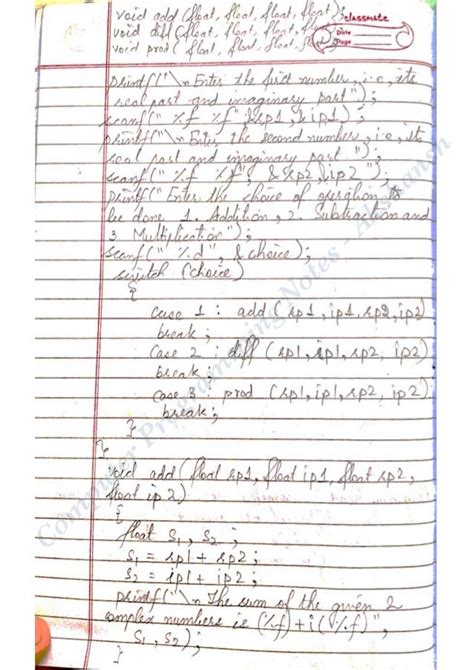 void add (float, float, float, float);
void diff (float, float, float, fl
void prod ( float, float, float, fl
classmate
Date
Page
printf("\n Enter the first number, i.e, its
real part and imaginary part");
scanf(" %f %f" &rp1, &ip1);
printf("\n Enter the second number, i.e, its
real part and imaginary part ");
scanf(" %f %f", &rp2, &ip2 ");
printf("Enter the choice of operation to
be done 1. Addition, 2. Subtraction and
3 Multiplication");
scanf(" %d", &choice);
switch (choice)
{
case 1 : add (rp1, ip1, rp2, ip2)
break;
case 2 : diff (rp1, ip1, rp2, ip2)
break;
case 3 : prod (rp1, ip1, rp2, ip2)
break;
}
}
void add (float rp1, float ip1, float rp2,
float ip2)
{
float s1, s2;
s1 = rp1 + rp2;
s2 = ip1 + ip2;
printf("\n The sum of the given 2
complex numbers is (%f)+i(%f)",
s1, s2);
}
Computer Programming Notes - Akshansh